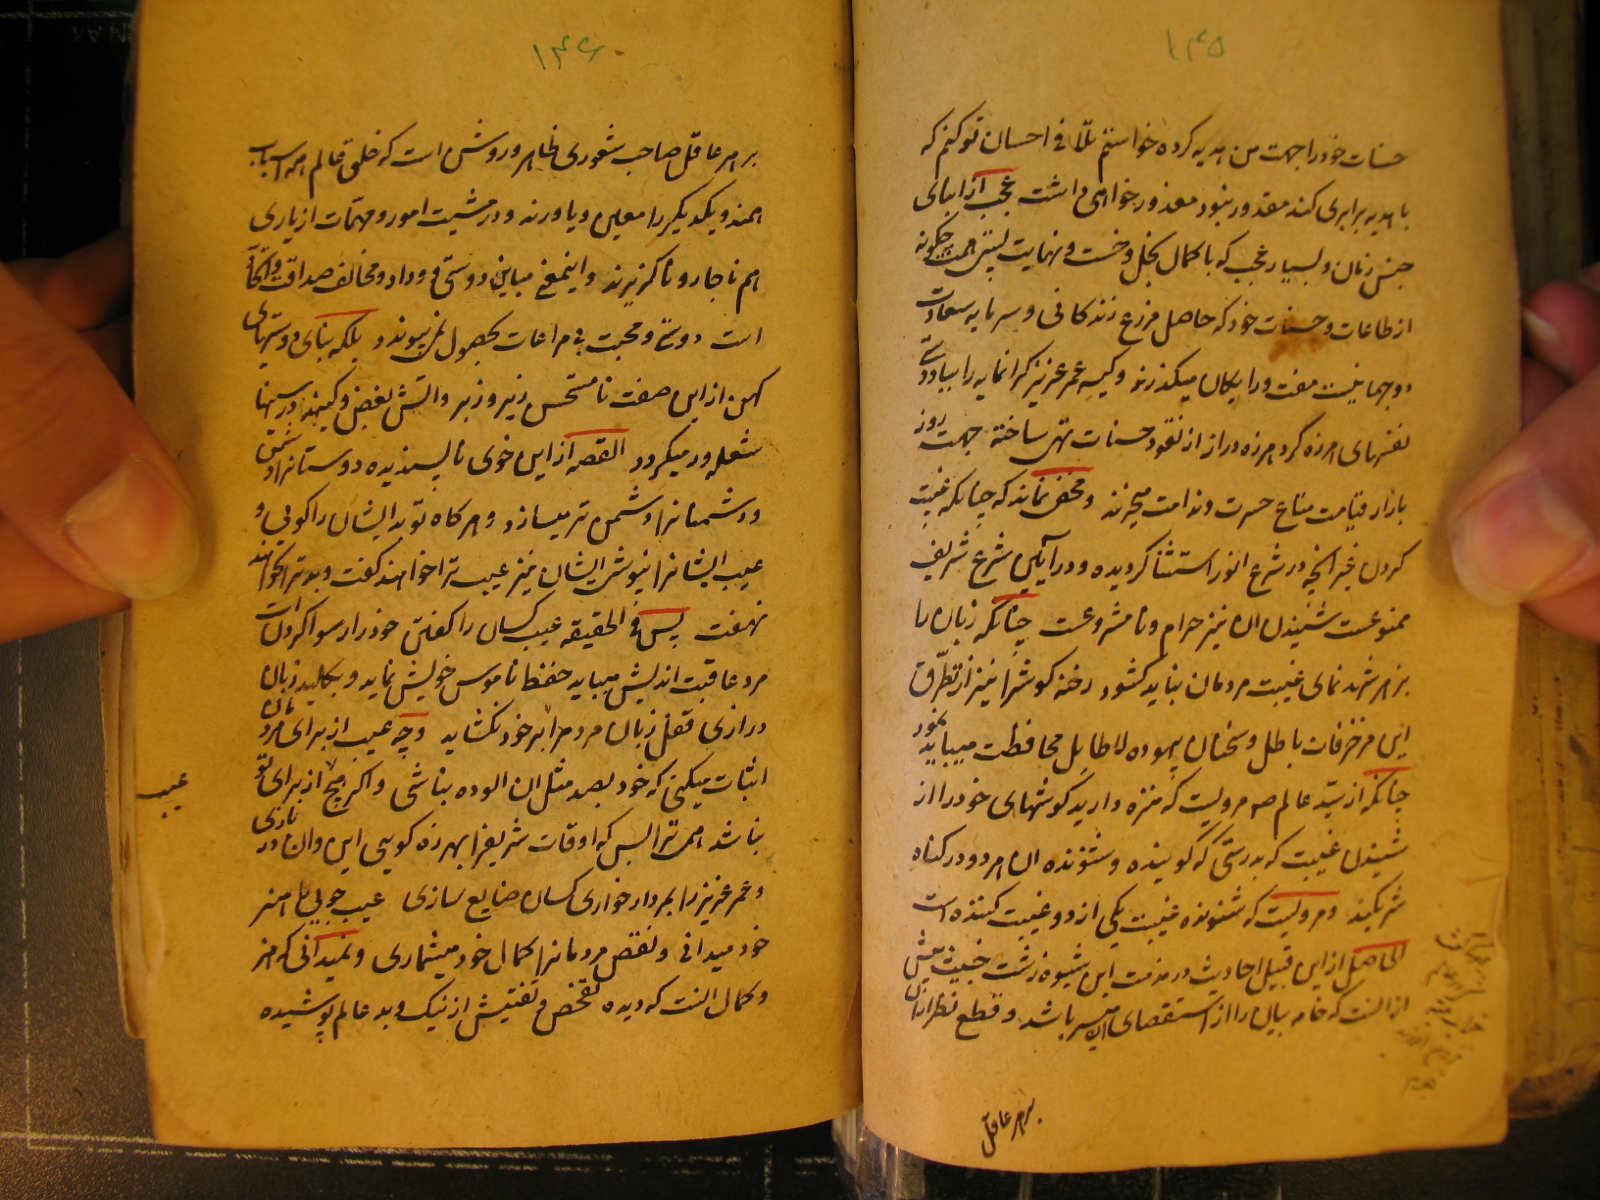 ۱۴۵
حسنات خود را جهت من هدیه کرده خواستم تلافی احسان تو کنم که
با هدیه برابری کند مقدور نبود معذور خواهی داشت عجب از ابنای
جنس زنان و بسیار عجب که با کمال بخل و خست و نهایت پستی همت چگونه
از طاعات و حسنات خود که حاصل مزرع زندگانی و سرمایه سعادت
دو جهانیست مفت و رایگان میگذرند و کیسه عمر عزیز گرانمایه را بباد
نفسهای هرزه گرد هرزه دراز از نقود حسنات تهی ساخته جهت روز
بازار قیامت متاع حسرت و ندامت میخرند و مخفی نماند که چنانکه غیبت
کردن غیر آنچه در شرع انور استثنا کردیده و در آیین شرع شریف
ممنوعست شنیدن ان نیز حرام و نامشروعست چنانکه زبان را
بزهر شهد نمای غیبت مردمان نباید کشود رخنه گوش را نیز از تطرّق
این مزخرفات باطل و سخنان بیهوده لا طایل محافظت میباید نمود
چنانکه از سیّد عالم ص مرویست که منزه دارید گوشهای خود را از
شنیدن غیبت که بدرستی که گوینده و شنونده ان هر دو در گناه
شریکند و مرویست که شنونده غیبت یکی از دو غیبت کننده است
الحاصل از این قبیل احادیث در مذمت این شیوه زشت خبیث بیش
از انست که خامه بیان را از استقصای ان میسر باشد و قطع نظر از ان
بر هر عاقل
۱۴۶
بر هر عاقل صاحب شعوری ظاهر و روشن است که خلق عالم همه اسباب
همند و یکدیگر را معین و یاورند و در مشیت امور و مهمّات از یاری
هم ناچار و ناگزیرند و اینمعنی مباین دوستی و وداد و مخالف صداقت و اتحاد
است دوستی و محبت بی مراعات بحصول نمی پیوندد بلکه بنای دوستیهای
کهن از این صفت نامستحسن زیر و زبر و اتش بغض و کینه در سینها
شعله ور میگردد القصه از این خوی ناپسندیده دوستانرا دشمن
و دشمنانرا دشمن تر میسازد و هر گاه تو بد ایشان را گویی و
عیب ایشانرا نپوشی ایشان نیز عیب ترا خواهند گفت و بد ترا نخواهند
نهفت پس فی الحقیقه عیب کسان را گفتن خود را رسوا کردن است
مرد عاقبت اندیش میباید حفظ ناموس خویش نماید و بکلید زبان
درازی قفل زبان مردم را بر خود نگشاید و چه عیب از برای مردمان
اثبات میکنی که خود بصد مثل ان الوده نباشی و اگر هیچ از برای تو
عیب
نباشد همین ترا بس که اوقات شریف را بهرزه گویی این و ان در بازی
و عمر عزیز را بمردار خواری کسان ضایع سازی عیب جویی را هنر
خود میدانی و نقص مردمانرا کمال خود میشماری و نمیدانی که هنر
و کمال انست که دیده تفحص و تفتیش از نیک و بد عالم پوشیده